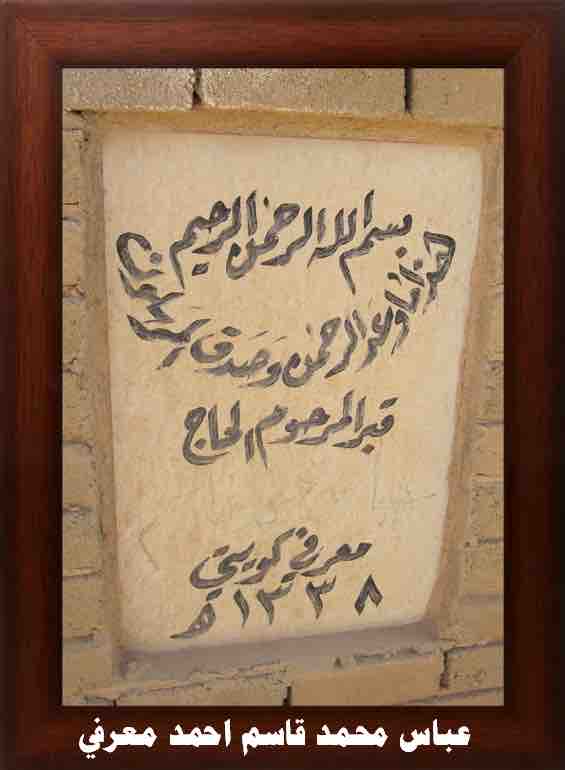 بسم الله الرحمن الرحيم
هذا ما وعد الرحمن وصدق المرسلون
قبر المرحوم الحاج
معرفي كويتي
١٣٣٨ هـ
عباس محمد قاسم احمد معرفي